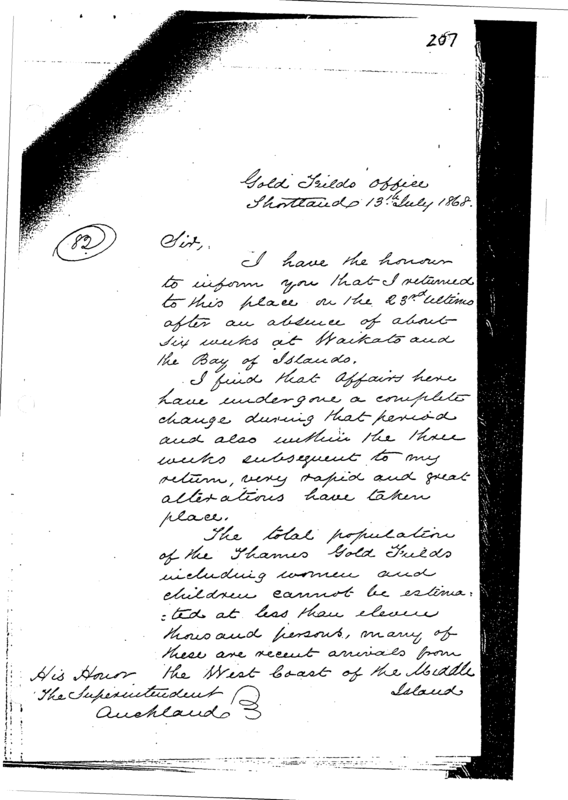 207
Gold Fields Office
Shortland 13th July 1868.
82
Sir,
I have the honour
to inform you that I returned
to this place on the 23rd Ultimo
after an absence of about
six weeks at Waikato and
the Bay of Islands.
I find that Affairs here
have undergone a complete
change during that period
and also within the three
weeks subsequent to my
return, very rapid and great
alterations have taken
place.
The total population
of the Thames Gold Fields
including women and
children cannot be estima:
:ted at less than eleven
thousand persons, many of
these are recent arrivals from
the West Coast of the Middle
Island
His Honor
The Superintendent
Auckland